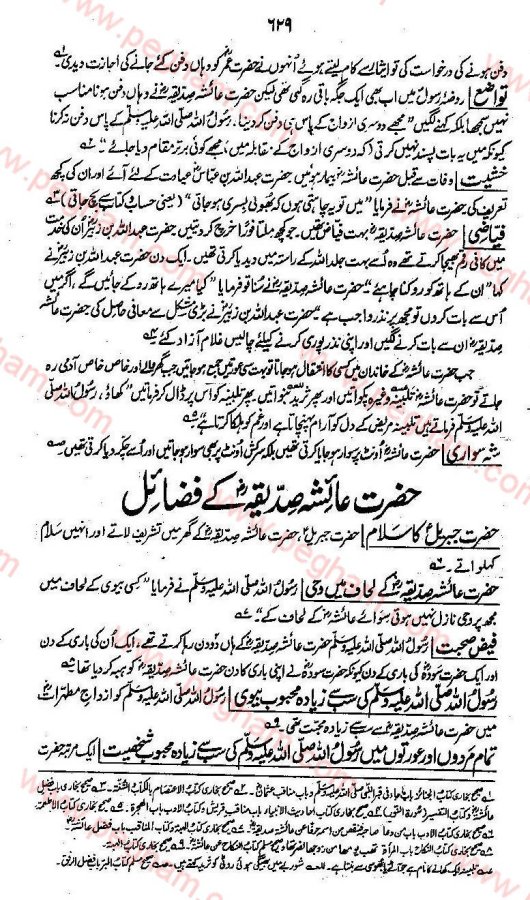 ۶۲۹
دفن ہونے کی درخواست کی تو ایثار سے کام لیتے ہوئے اُنہوں نے حضرت عمرؓ کو وہاں دفن کئے جانے کی اجازت دیدی۔
تواضع روضۂ رسولؐ میں اب بھی ایک جگہ باقی رہ گئی تھی لیکن حضرت عائشہ صدیقہؓ نے وہاں دفن ہونا مناسب
نہیں سمجھا بلکہ کہنے لگیں "مجھے دوسری ازواج کے پاس ہی دفن کر دینا، رسول اللہ صلی اللہ علیہ وسلم کے پاس دفن نہ کرنا
کیونکہ میں یہ بات پسند نہیں کرتی (کہ دوسری ازواج کے مقابلہ میں) مجھے کوئی برتر مقام دیا جائے"
خشیت وفات سے قبل حضرت عائشہؓ بیمار ہوئیں حضرت عبداللہ بن عباسؓ عیادت کے لئے آئے اور ان کی کچھ
تعریف کی حضرت عائشہؓ نے فرمایا "میں تو یہ چاہتی ہوں کہ بھولی بسری ہو جاتی" (یعنی حساب کتاب سے بچ جاتی)
فیاضی حضرت عائشہ صدیقہؓ بہت فیاض تھیں۔ جو کچھ ملتا فورًا خرچ کر دیتیں حضرت عبداللہ بن زبیرؓ ان کی خدمت
میں کافی رقم بھیجا کرتے تھے وہ اُسے بہت جلد اللہ کے راستہ میں دیدیا کرتی تھیں۔ ایک دن حضرت عبداللہ بن زبیرؓ نے
کہا "ان کے ہاتھ کو روکنا چاہئے" حضرت عائشہ صدیقہؓ نے سُنا تو فرمایا "کیا میرے ہاتھ روکے جائیں گے، اگر میں
اُس سے بات کروں تو مجھ پر نذر واجب ہے" حضرت عبداللہ بن زبیرؓ نے بڑی مشکل سے معافی حاصل کی حضرت عائشہ
صدیقہؓ ان سے بات کرنے لگیں اور اپنی نذر پوری کرنے کیلئے چالیس غلام آزاد کئے
جب حضرت عائشہؓ کے خاندان میں کسی کا انتقال ہو جاتا تو بہت سی عورتیں جمع ہو جاتیں جب گھر والے اور خاص خاص آدمی رہ
جاتے تو حضرت عائشہؓ تلبینہ وغیرہ پکواتیں اور پھر ثرید بنواتیں پھر تلبینہ کو اُس پر ڈال کر فرماتیں "کھاؤ، رسول اللہ صلی
اللہ علیہ وسلم فرماتے ہیں تلبینہ مریض کے دل کو آرام پہنچاتا ہے اور غم کو ہلکا کرتا ہے"
شہ سواری حضرت عائشہؓ اُونٹ پر سوار ہو جایا کرتی تھیں بلکہ سرکش اُونٹ پر بھی سوار ہو جاتیں اور اُسے چکر دیا کرتی تھیں۔
حضرت عائشہ صدیقہؓ کے فضائل
حضرت جبریلؑ کا سلام حضرت جبریلؑ، حضرت عائشہ صدیقہؓ کے گھر میں تشریف لاتے اور انہیں سلام
کہلواتے۔
حضرت عائشہ صدیقہؓ کے لحاف میں وحی رسول اللہ صلی اللہ علیہ وسلم نے فرمایا "کسی بیوی کے لحاف میں
مجھ پر وحی نازل نہیں ہوئی سوائے عائشہؓ کے لحاف کے"
فیض صحبت رسول اللہ صلی اللہ علیہ وسلم حضرت عائشہ صدیقہؓ کے ہاں دو دن رہا کرتے تھے، ایک ان کی باری کے دن
اور ایک حضرت سودہؓ کی باری کے دن کیونکہ حضرت سودہؓ نے اپنی باری کا دن حضرت عائشہ صدیقہؓ کو ہبہ کر دیا تھا
رسول اللہ صلی اللہ علیہ وسلم کی سب سے زیادہ محبوب بیوی رسول اللہ صلی اللہ علیہ وسلم کو ازواج مطہرات
میں حضرت عائشہ صدیقہؓ سے سب سے زیادہ محبت تھی۔
تمام مردوں اور عورتوں میں رسول اللہ صلی اللہ علیہ وسلم کی سب سے زیادہ محبوب شخصیت ایک مرتبہ حضرت
www.pegham.com